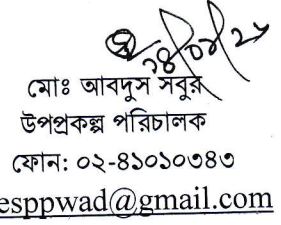 মোঃ আবদুস সবুর
উপপ্রকল্প পরিচালক
ফোন: ০২-৪১০১০৩৪৩
esppwad@gmail.com